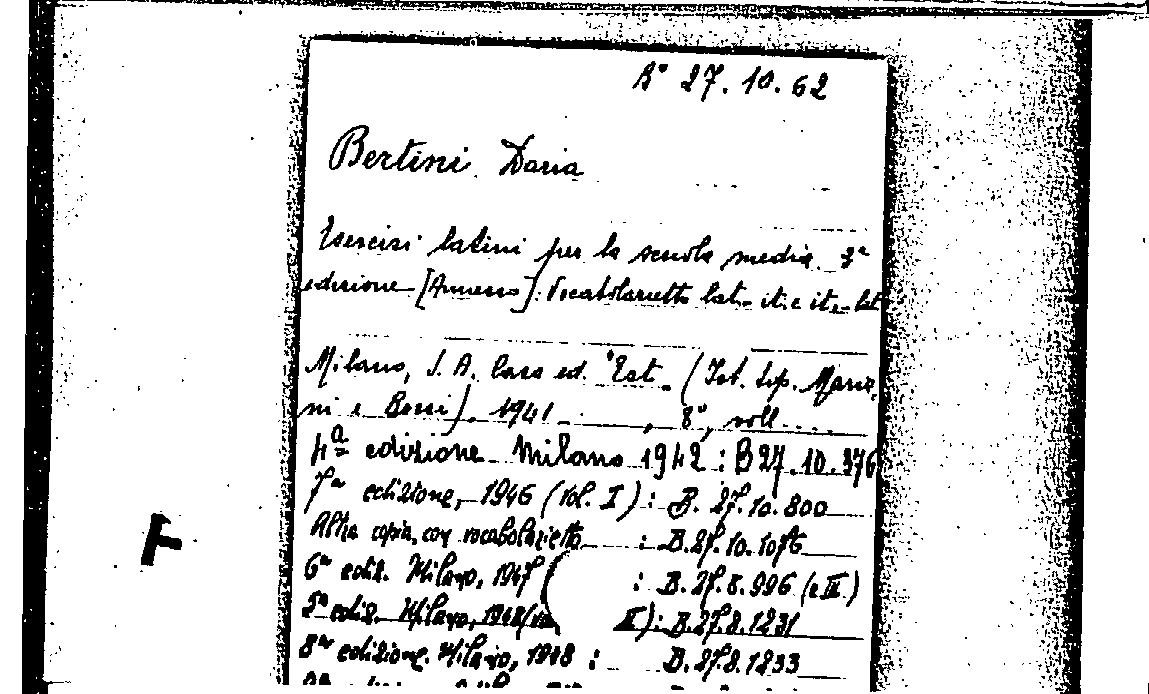 B° 27.10.62
Bertini Daria
Esercizi latini per la scuola media. 3ª
edizione [Annesso]: Vocabolarietto lat.-it. e it.-lat
Milano, S. A. Casa ed. "Est" (Ist. tip. Marie-
ni e Bossi). 1941 , 8°, voll....
4ª edizione Milano 1942 : B 27.10.376
7ª edizione, 1946 (vol. I) : B. 27.10.800
Altra copia, con vocabolarietto : B.27.10.1076
6ª ediz. Milano, 1947 ( : B.27.8.996 (e III)
5ª ediz. Milano, 1948 II): B.27.8.1231
8ª edizione. Milano, 1948 : B.27.8.1233